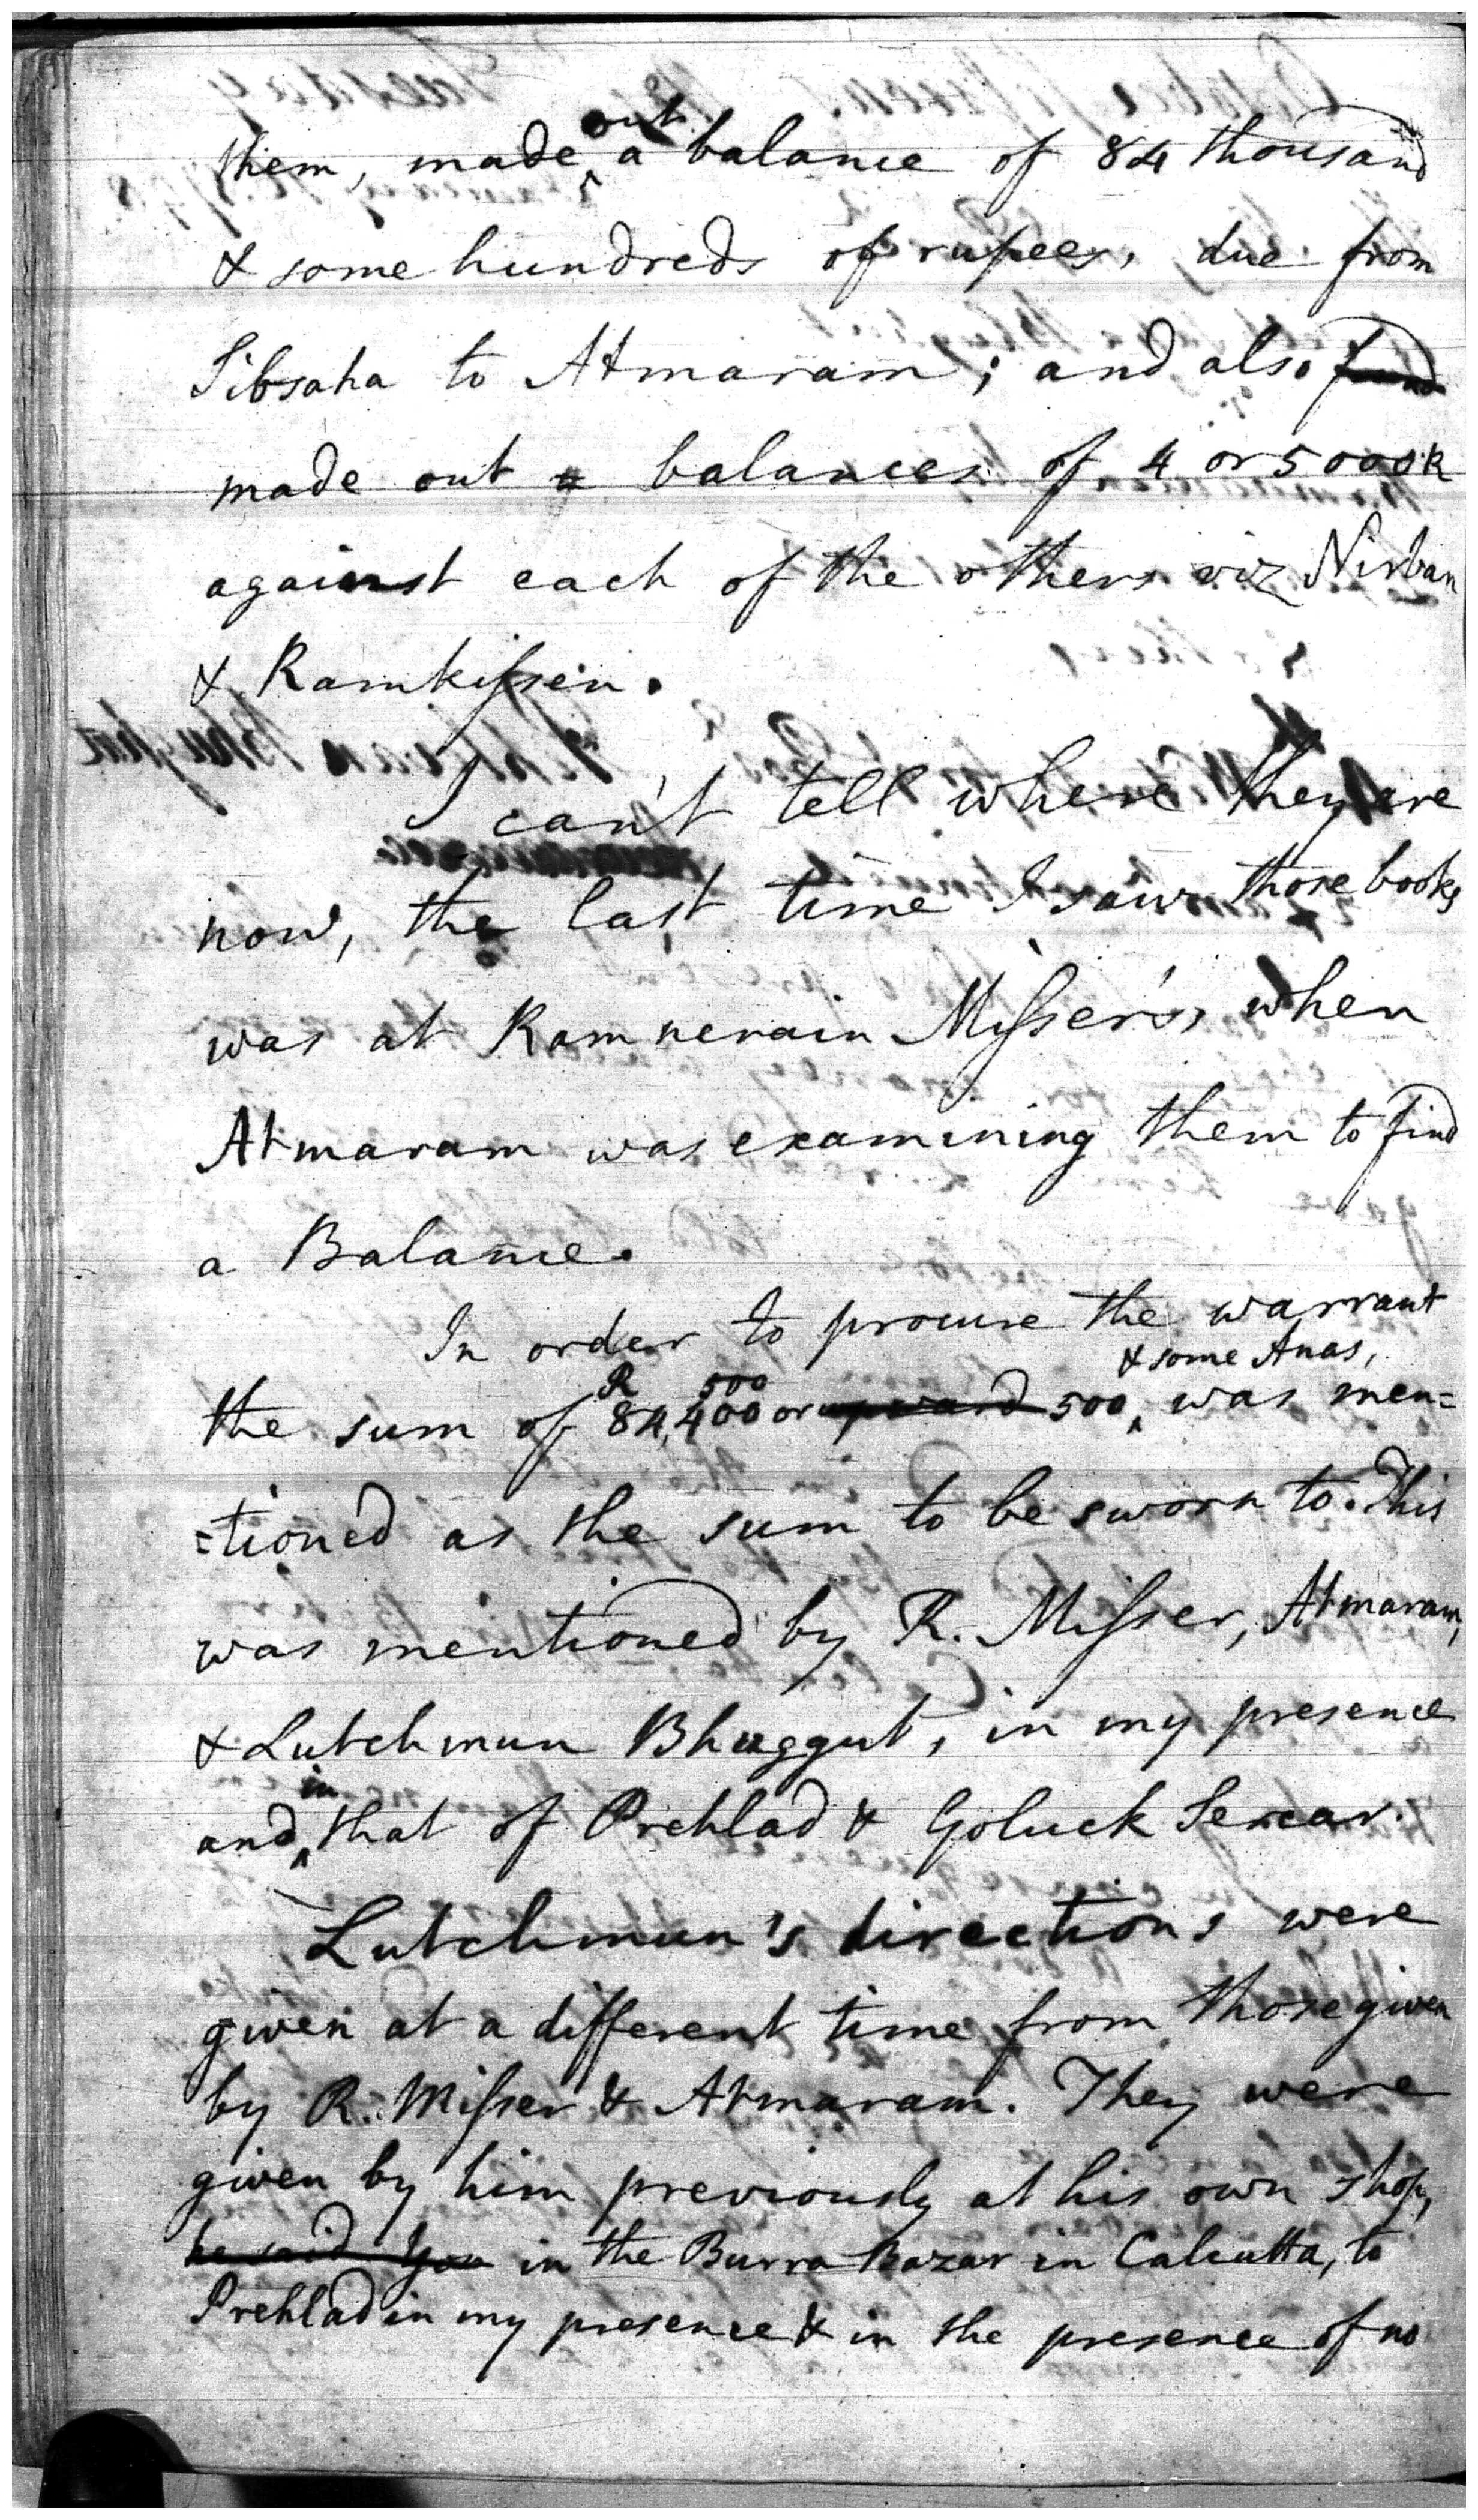 them, made out a balance of 84 thousand
& some hundreds of rupees, due from
Sibsaha to Atmaram; and also fund
made out a balances of 4 or 5000 R
against each of the others viz Nirban
& Ramkissen.
I can't tell where they are
now, the last time I saw those books
was at Ramnerain Misser's, when
Atmaram was examining them to find
a Balance.
In order to procure the warrant
& some Anas,
R 500
the sum of 84,400 or upward 500, was men=
=tioned as the sum to be sworn to. This
was mentioned by R. Misser, Atmaram,
& Lutchmun Bhuggut, in my presence
and in that of Prehlad & Goluck Sercar.
Lutchmun's directions were
given at a different time from those given
by R. Misser & Atmaram. They were
given by him previously at his own shop,
he said you in the Burra Bazar in Calcutta, to
Prehlad in my presence & in the presence of no